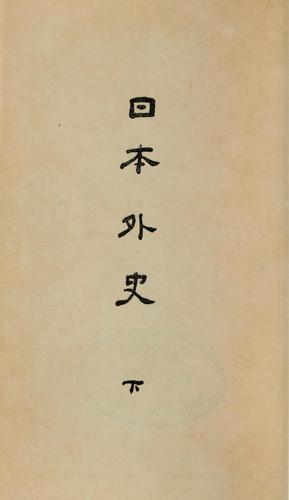 日本外史 下